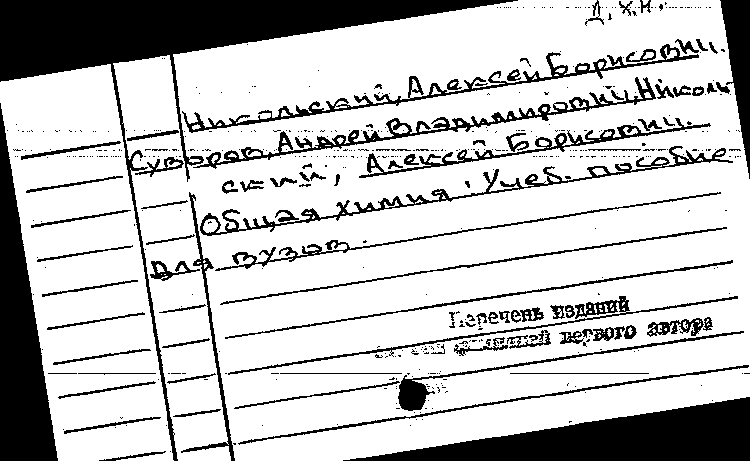 Д. х. н.
Никольский, Алексей Борисович.
Суворов, Андрей Владимирович, Николь
ский, Алексей Борисович.
Общая химия. Учеб. пособие
для вузов.
Перечень изданий
фамилией первого автора